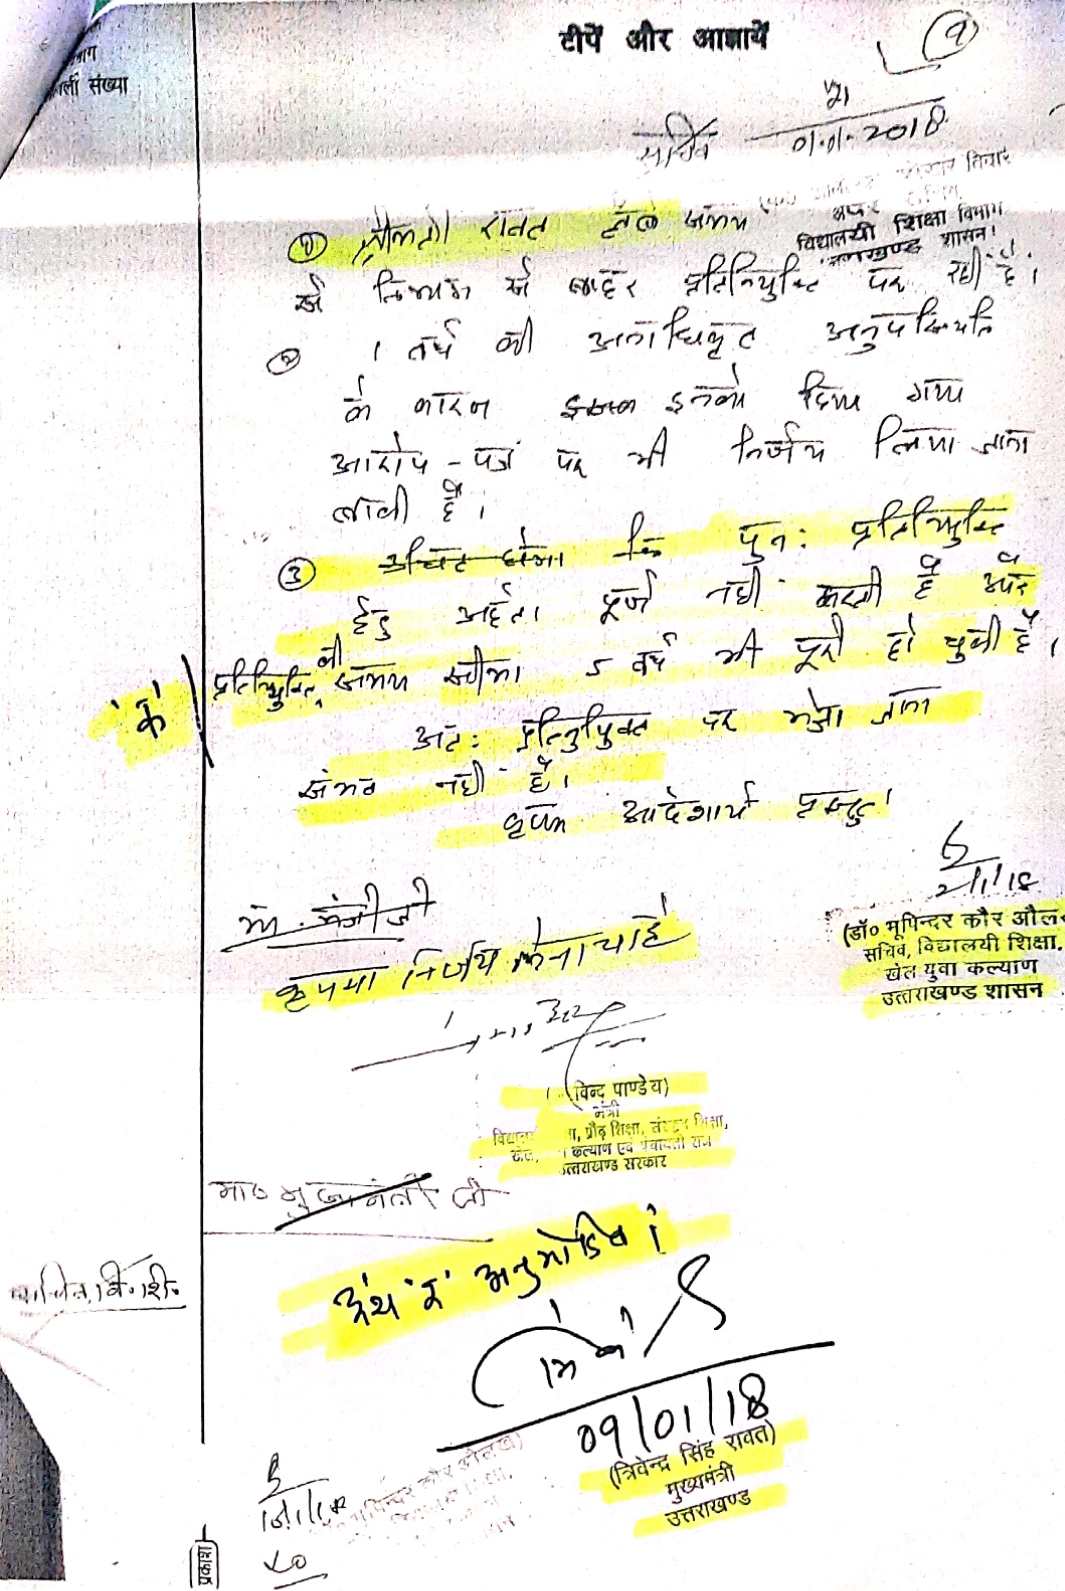 टीपें और आज्ञायें
संख्या
सचिव
01.01.2018
अपर
विद्यालयी शिक्षा विभाग
शासन।
① श्रीमती रावत लम्बे समय
से विभाग से बाहर प्रतिनियुक्ति पर रही हैं।
② 1 वर्ष की अनाधिकृत अनुपस्थिति
के कारण इनको दिया गया
आरोप-पत्र पर भी निर्णय लिया जाना
बाकी है।
③ उचित होगा कि पुनः प्रतिनियुक्ति
हेतु अर्हता पूर्ण नहीं करती है और
प्रतिनियुक्ति की समय सीमा 5 वर्ष भी पूरी हो चुकी है।
'क'
अतः प्रतिनियुक्ति पर भेजा जाना
संभव नहीं है।
कृपया आदेशार्थ प्रस्तुत।
2/1/18
(डॉ० भूपिन्दर कौर औलख
सचिव, विद्यालयी शिक्षा,
खेल युवा कल्याण
उत्तराखण्ड शासन
मा. मंत्री जी
कृपया निर्णय लेना चाहें
विन्द पाण्डेय)
मंत्री
शिक्षा, प्रौढ़ शिक्षा, संस्कृत शिक्षा,
खेल, कल्याण एवं पंचायती राज
उत्तराखण्ड सरकार
मा० मुख्यमंत्री जी
अनुमोदित।
सचिव, वि.शि.
09/01/18
(त्रिवेन्द्र सिंह रावत)
मुख्यमंत्री
उत्तराखण्ड
प्रकाश